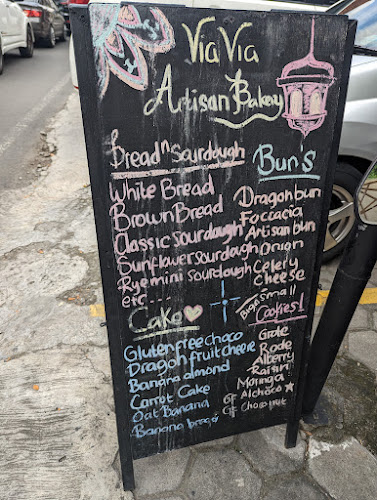 Via Via
Artisan Bakery
Bread n Sourdough
White Bread
Brown Bread
Classic sourdough
Sunflower sourdough
Rye mini sourdough
etc...
Bun's
Dragon bun
Foccacia
Artisan bun
Onion
Celery
Cheese
small
Cake
Gluten free choco
Dragon fruit cheese
Banana almond
Carrot Cake
Oat Banana
Banana bread
Cookies!
Rode
Raisin
Moringa
GF Alchoco
GF Choconut